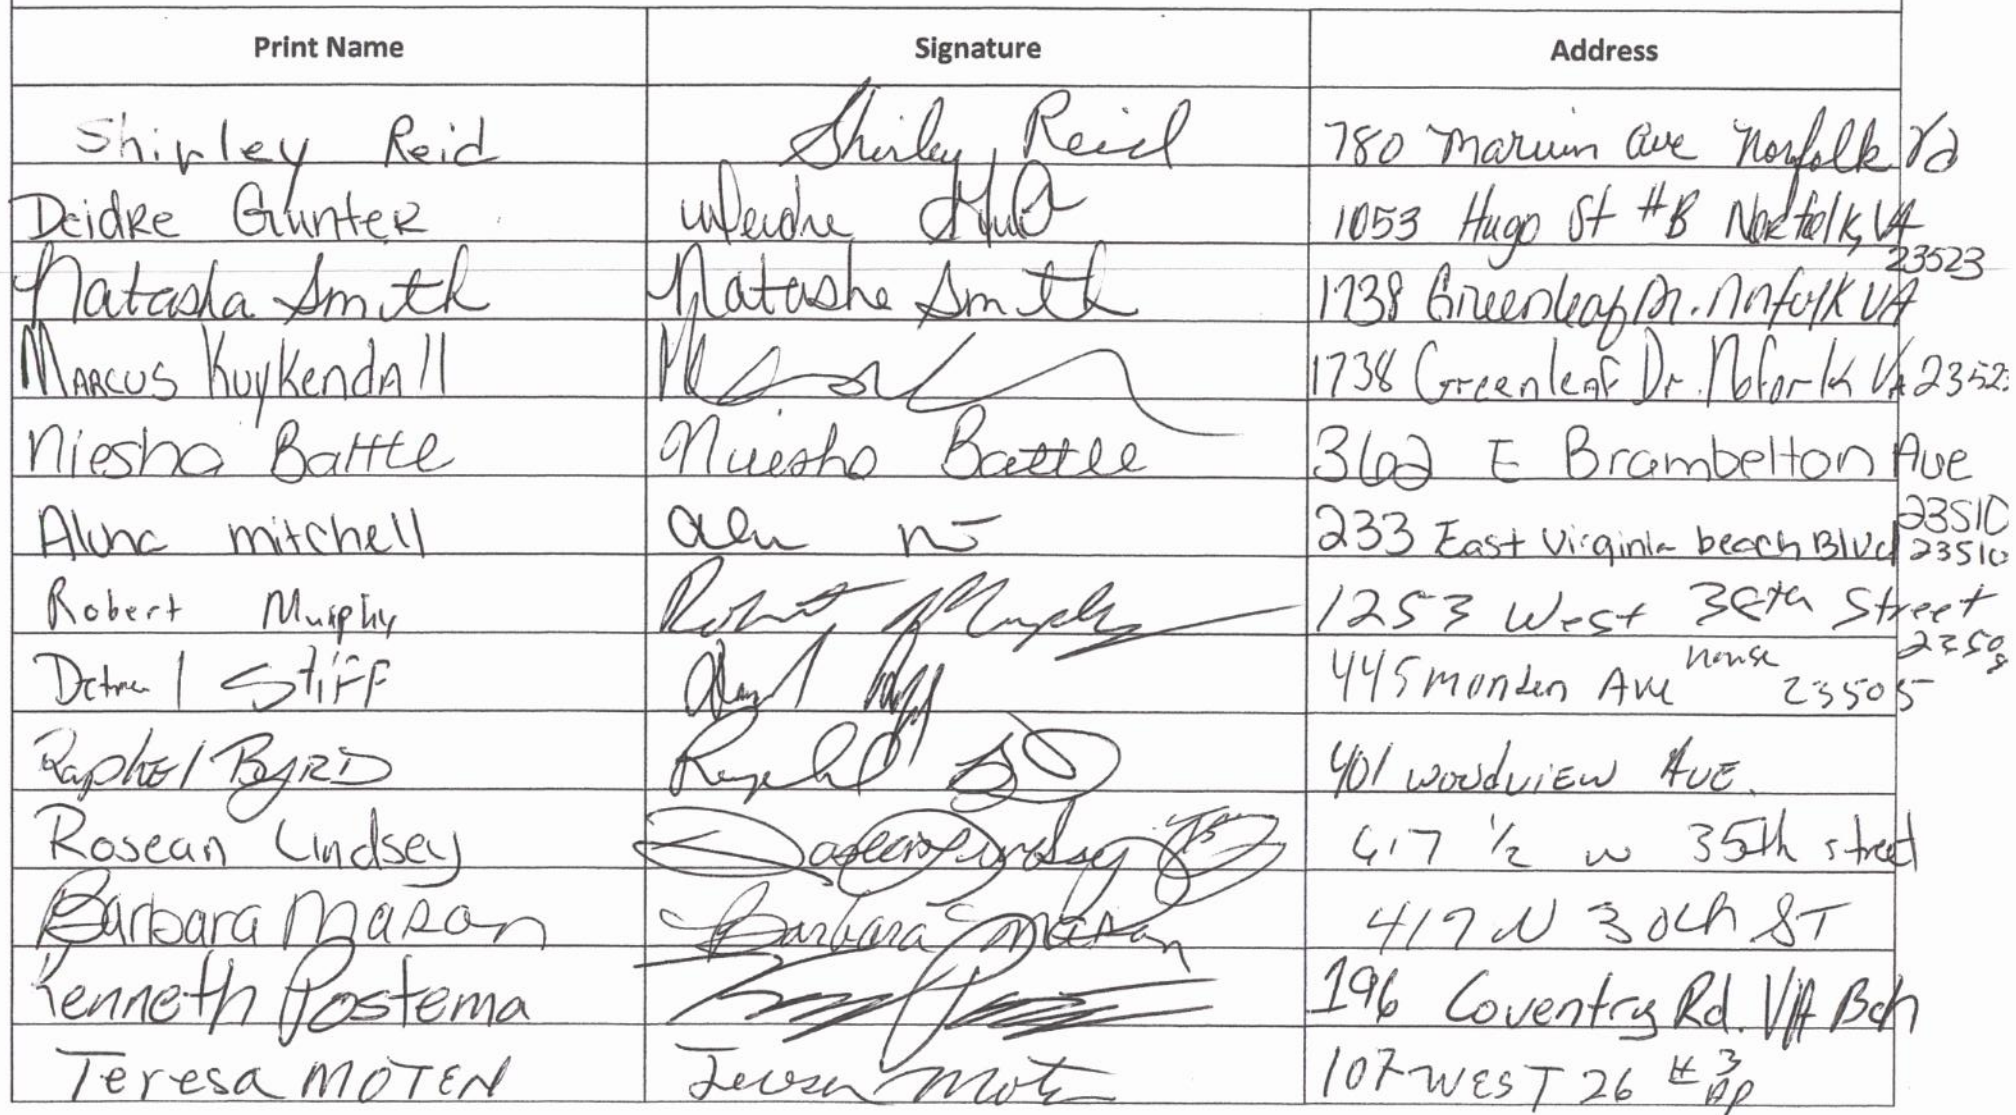 Print Name Signature Address
Shirley Reid Shirley Reid 780 Marvin Ave Norfolk Va
Deidre Gunter Deidre 1053 Hugo St #B Norfolk, VA
23523
Natasha Smith Natasha Smith 1738 Greenleaf Dr. Norfolk VA
Marcus Kuykendall 1738 Greenleaf Dr. Nofork VA 2352
Niesha Battle Niesha Battle 362 E Brambelton Ave
23510
Mitchell 233 East Virginia beach Blvd 23510
Robert Murphy Robert Murphy 1253 West 38th Street
23508
Stiff 445 Monden Ave 23505
Raphel Byrd 401 woodview Ave.
Rosean Lindsey Rosean Lindsey 417 1/2 w 35th street
Barbara Mason Barbara Mason 419 30th ST
Kenneth Postema 196 Coventry Rd. VA Bch
Teresa MOTEN Teresa Moten 107 WEST 26 # 3
AP